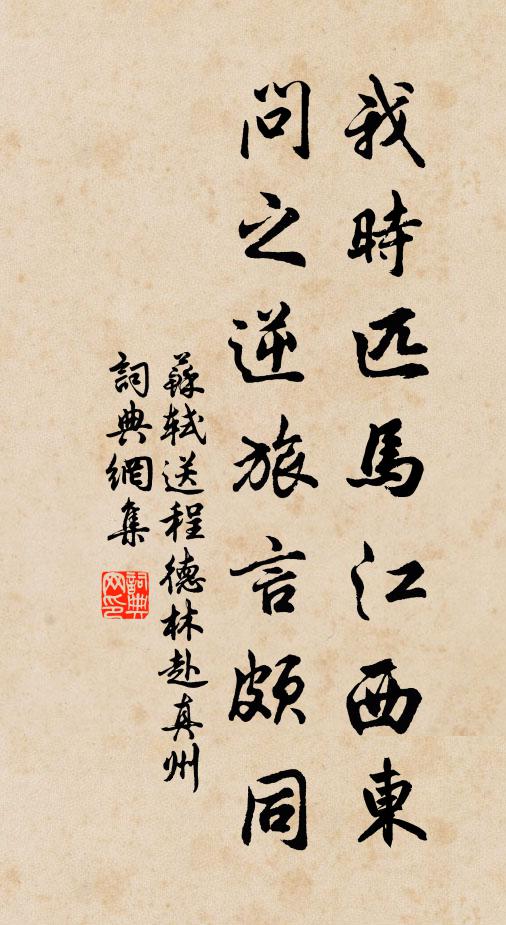 我時匹馬江西東
問之逆旅言頗同
蘇軾送程德林赴真州
詞典網集
詞典網印